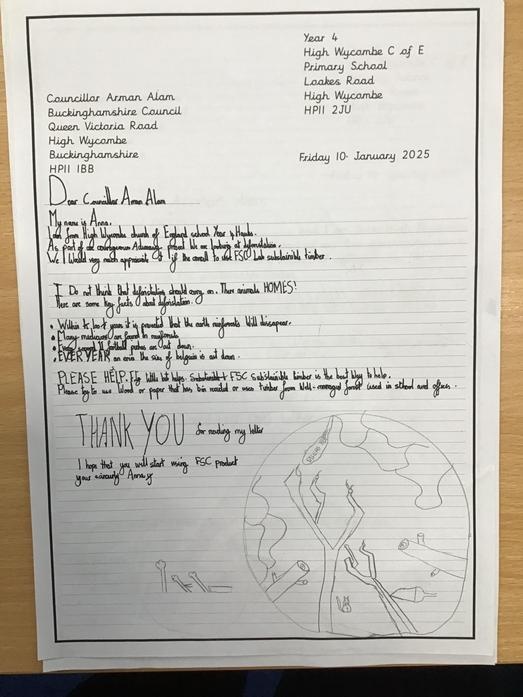 Year 4
High Wycombe C of E
Primary School
Loakes Road
High Wycombe
HP11 2JU
Councillor Arman Alam
Buckinghamshire Council
Queen Victoria Road
High Wycombe
Buckinghamshire
HP11 1BB
Friday 10 January 2025
Dear Councillor Arman Alam
My name is Anna.
I am from High Wycombe church of England school Year 4 Hawks.
As part of our courageous Advocacy project We are looking at deforestation.
We Would very much appreciate it if the council to use FSC Lab sustainable timber.
I Do not think that deforestation should carry on. There animals HOMES!
Here are some key facts about deforestation.
• Within the 100 years it is predicted that the earth rainforests Will disapear.
• Many medicines are found in rainforests
• Every second football pitches are cut down.
• EVERY YEAR an area the size of belgium is cut down.
PLEASE HELP. Ev little bit helps. FSC Sustainable timber is the best way to help.
Please try to use Wood or paper that has bin or uses timber from Well-managed forest used in school and offices.
THANK YOU for reading my letter
I hope that you will start using FSC product
your sincerly Anna